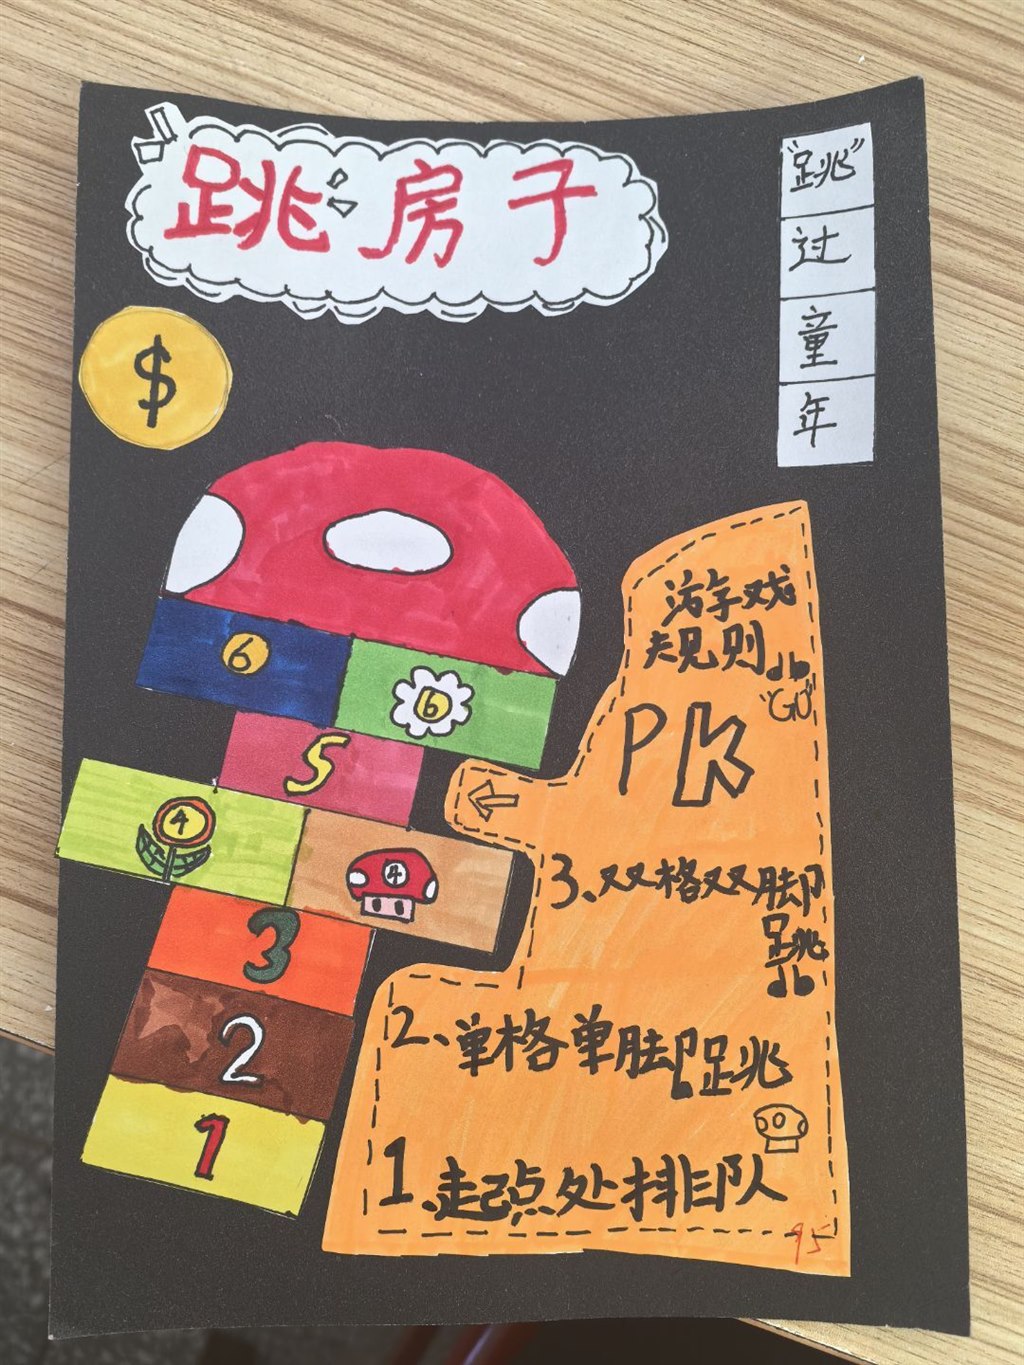 跳房子
"跳"
过
童
年
$
6
6
5
4
4
3
2
1
游戏
规则
"GO"
PK
3、双格双脚
跳
2、单格单脚跳
1、起点处排队
95